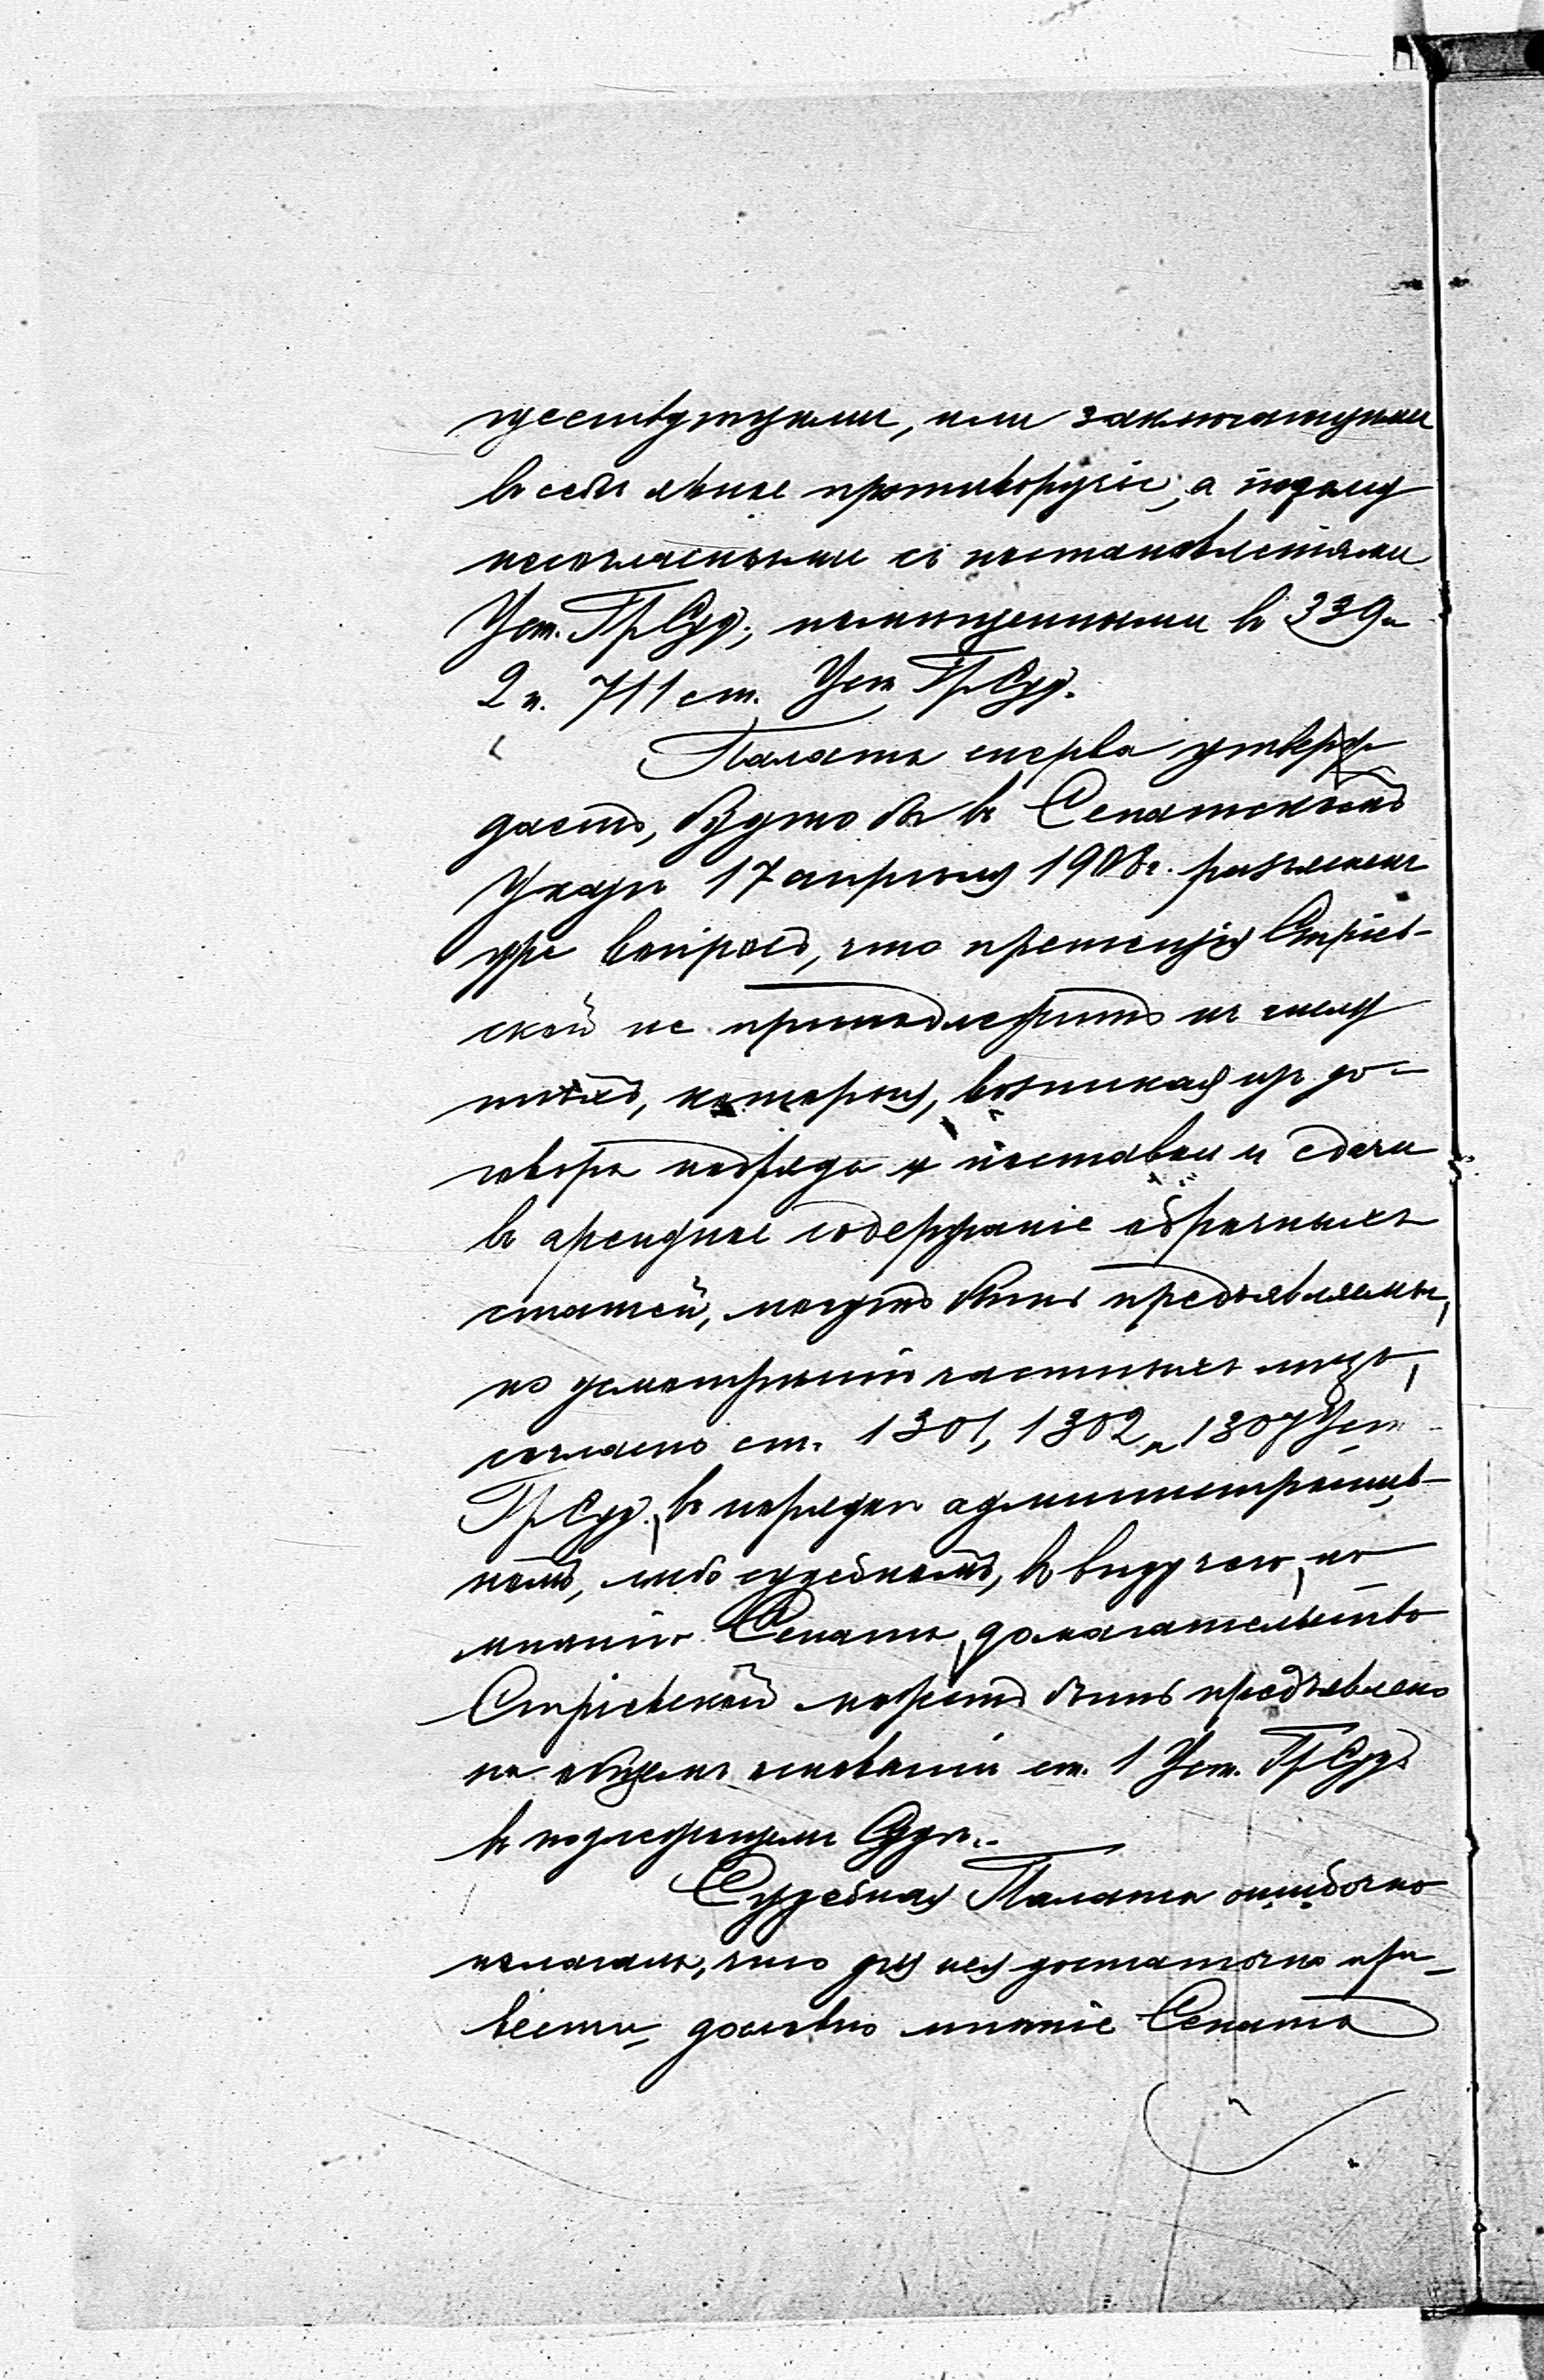 ществующими, или заключающими
въ себѣ явное противорѣчіе, а потому
несогласными съ постановленіями
Уст. Гр Суд., помѣщенными въ 339 и
2 п. 711 ст. Уст Гр Суд.
Палата сперва утверж-
даетъ, будто бы въ Сенатскомъ
Указѣ 17 апрѣля 1906 г. разъясненъ
уже вопросъ, что претензія Стріев-
ской не принадлежитъ къ числу
тѣхъ, которыя, возникая изъ до-
говора подряда и поставки и сдачи
въ арендное содержаніе оброчныхъ
статей, могутъ быть предъявляемы,
по усмотрѣнію частныхъ лицъ,
согласно ст. 1301, 1302 и 1307 Уст
Гр Суд., въ порядкѣ административ-
номъ, либо судебномъ, въ виду чего, по
мнѣнію Сената, домогательство
Стріевской можетъ быть предъявлено
на общемъ основаніи ст. 1 Уст. Гр Суд.
въ подлежащемъ Судѣ.
Судебная Палата ошибочно
полагала, что для нея достаточно при-
вести дословно мнѣніе Сената